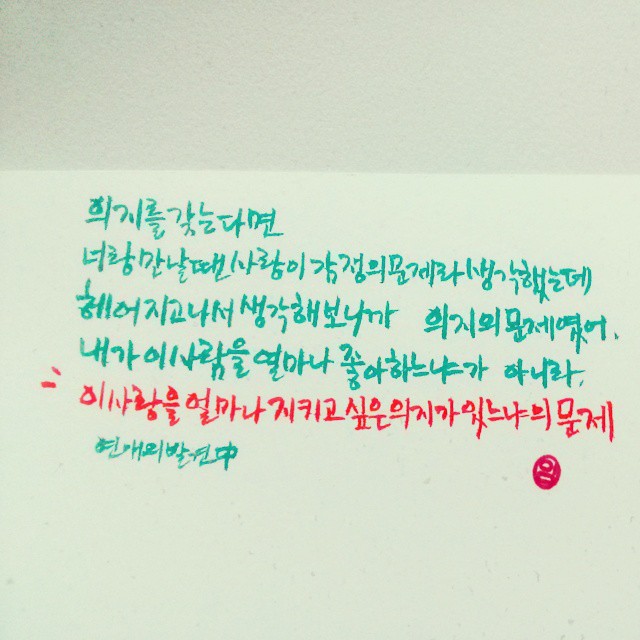 의지를 갖는다면
너랑 만날땐 사랑이 감정의 문제라 생각했는데
헤어지고나서 생각해보니까 의지의 문제였어.
내가 이사람을 얼마나 좋아하느냐가 아니라.
이 사랑을 얼마나 지키고 싶은 의지가 있느냐의 문제
연애의발견中